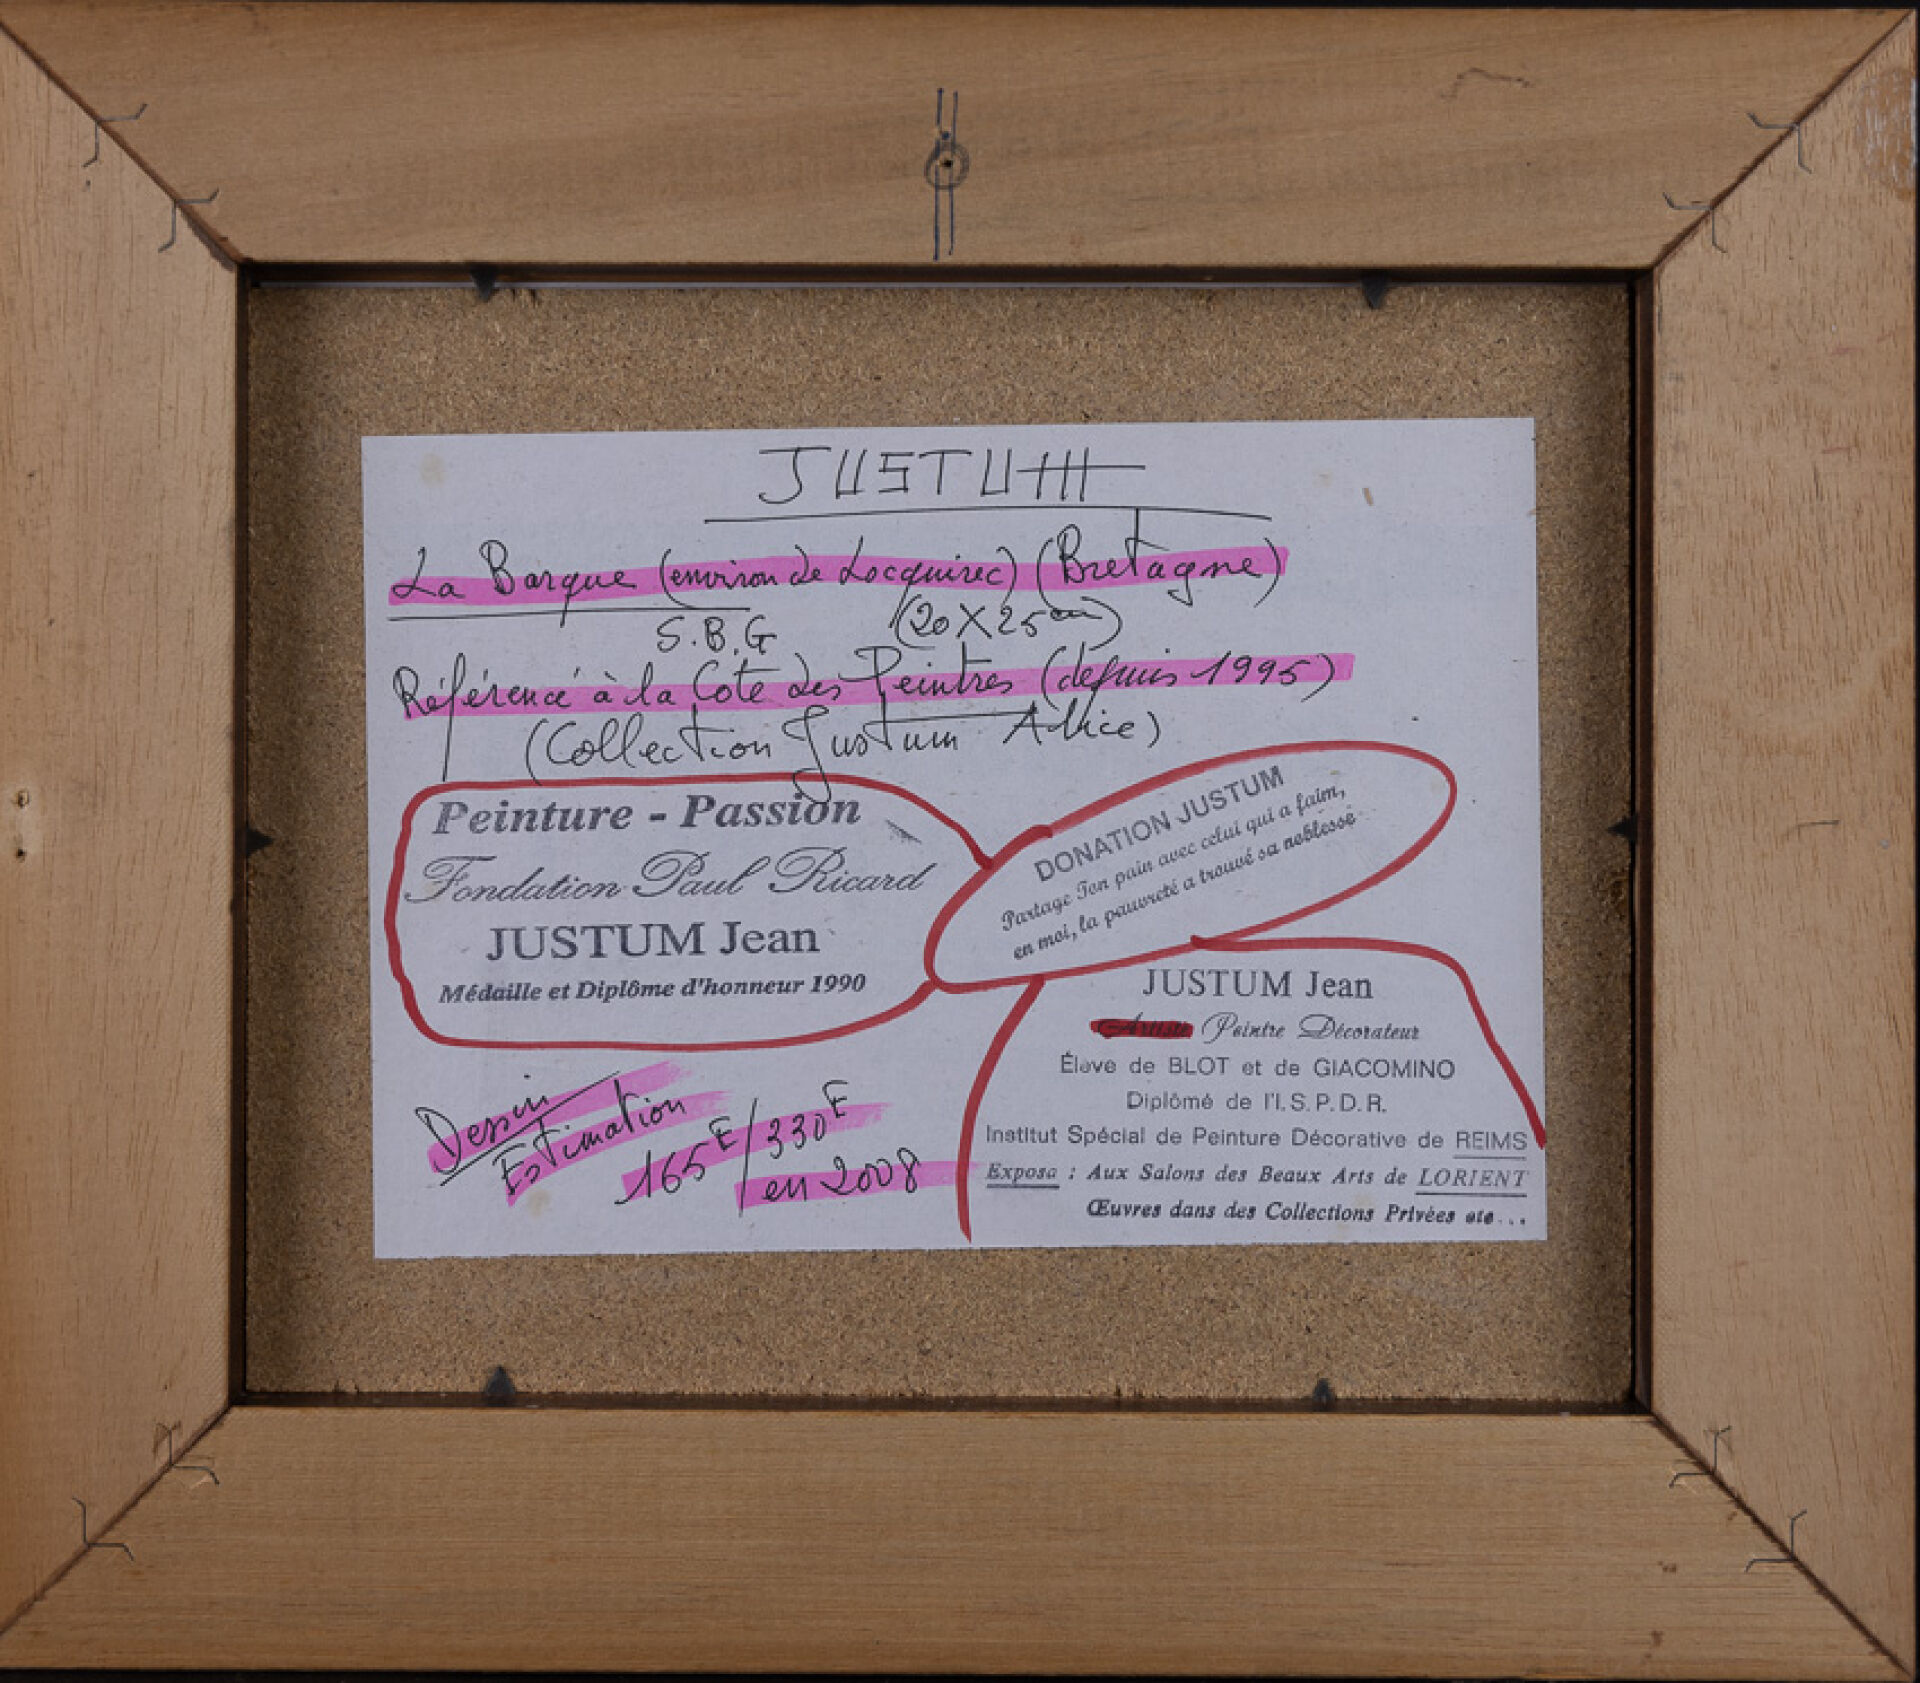 JUSTUM
La Barque (environ de Locquirec) (Bretagne)
S.B.G (20 X 25 cm)
Référencé à la Cote des Peintres (depuis 1995)
(Collection Justum Alice)
Peinture - Passion
Fondation Paul Ricard
JUSTUM Jean
Médaille et Diplôme d'honneur 1990
DONATION JUSTUM
Partage Ton pain avec celui qui a faim,
en moi, la pauvreté a trouvé sa noblesse
JUSTUM Jean
Artiste Peintre Décorateur
Élève de BLOT et de GIACOMINO
Diplômé de l'I.S.P.D.R.
Institut Spécial de Peinture Décorative de REIMS
Exposa : Aux Salons des Beaux Arts de LORIENT
Œuvres dans des Collections Privées etc...
Dessin
Estimation
165E/330E
en 2008